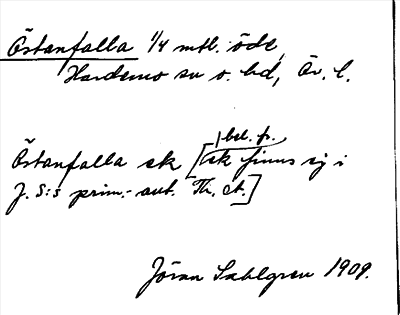 Östanfalla 1/4 mtl. öde,
Hardemo sn o. hd, Ör. l.
bel. fr.
Östanfalla sk [sk finns ej i
J. S:s prim.- ant. Th. A.]
Jöran Sahlgren 1909.